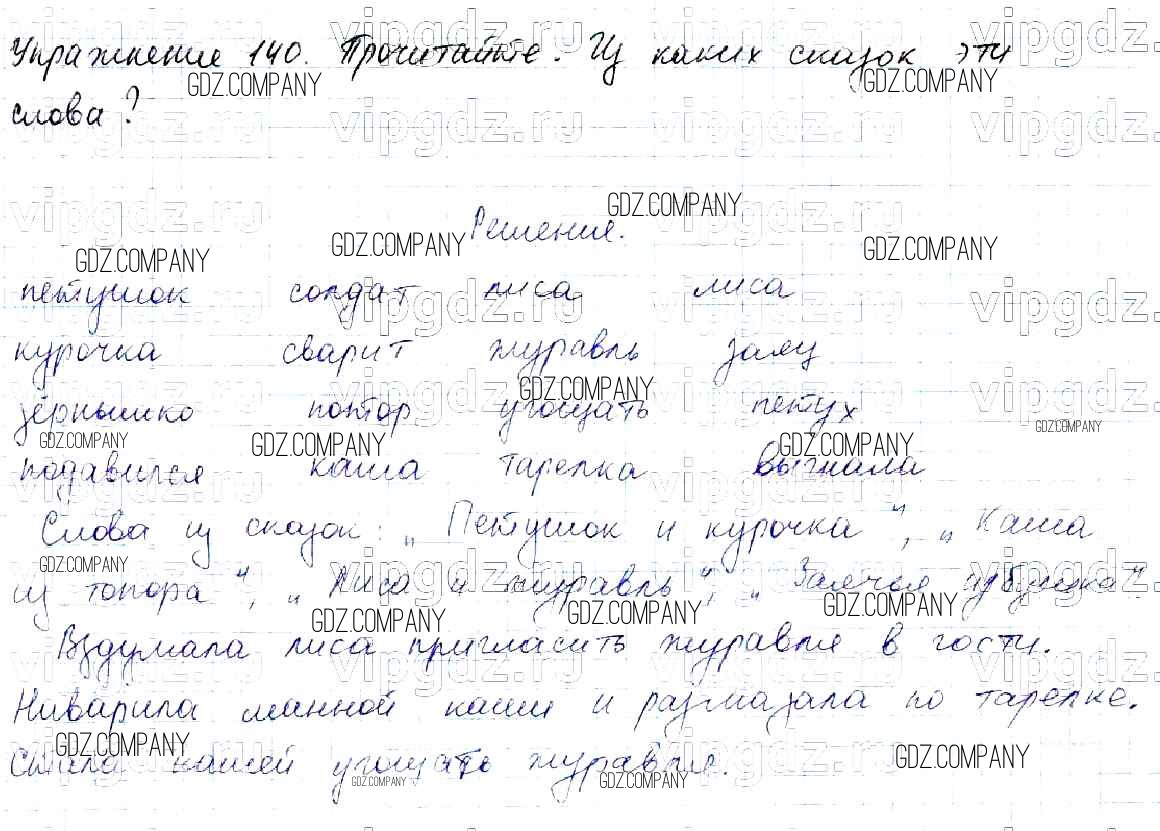 Упражнение 140. Прочитайте. Из каких сказок эти
слова?
Решение.
петушок солдат лиса лиса
курочка сварит журавль заяц
зёрнышко топор угощать петух
подавился каша тарелка выгнала
Слова из сказок: „Петушок и курочка“, „Каша
из топора“, „Лиса и журавль“, „Заячья избушка“.
Вздумала лиса пригласить журавля в гости.
Наварила манной каши и размазала по тарелке.
Стала кашей угощать журавля.
GDZ.COMPANY
vipgdz.ru